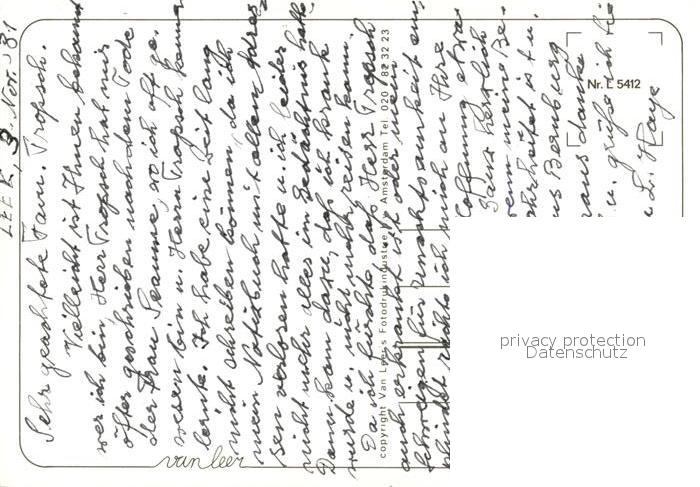 LEER, 3. Nov. 81
Sehr geachtete Fam. Tropsch.
Vielleicht ist Ihnen bekannt
wer ich bin, Herr Tropsch hat mir
öfter geschrieben nach dem Tode
der Frau Seume, wo ich oft ge-
wesen bin u. Herrn Tropsch kennen
lernte. Ich habe eine Zeit lang
nicht schreiben können, da ich
mein Notizbuch mit allem Adres-
sen verloren hatte u. ich leider
nicht mehr alles im Gedächtnis hatte
Dann kam dazu, daß ich krank
wurde u. nicht mehr reisen kann.
Da ich fürchte, daß Herr Tropsch
auch erkrankt ist oder mein
Schweigen für Unachtsamkeit em-
pfindet möchte ich mich an Ihre
Hoffnung
ganz herzlich
wenn meine Be-
ist u.
aus Bernburg
aus danke
u. grüße ich Sie
L. Haye
Nr. L 5412
copyright Van Leer's Fotodrukindustrie b.v. Amsterdam Tel. 020 / 82 32 23
van leer
privacy protection
Datenschutz